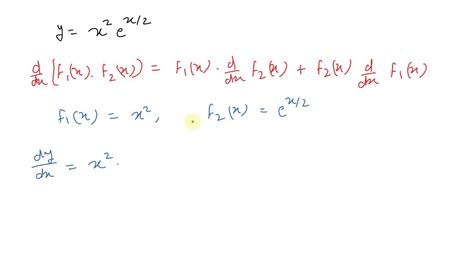 y = x² e^{x/2}
d/dx [F₁(x) . F₂(x)] = F₁(x) . d/dx F₂(x) + F₂(x) d/dx F₁(x)
F₁(x) = x² , F₂(x) = e^{x/2}
dy/dx = x² .